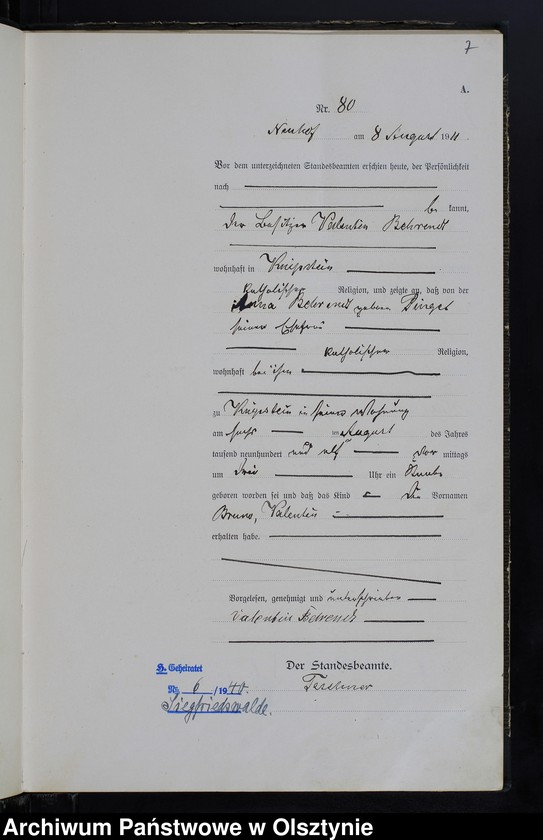 7
A.
Nr. 80
Neuhof am 8 August 1911
Vor dem unterzeichneten Standesbeamten erschien heute, der Persönlichkeit
nach
be kannt,
der Besitzer Valentin Behrendt
wohnhaft in Knipstein
katholischer Religion, und zeigte an, daß von der
Anna Behrendt geboren
seiner Ehefrau
katholischer Religion,
wohnhaft bei ihm
zu Knipstein in seiner Wohnung
am sechs ten August des Jahres
tausend neunhundert und elf Vor mittags
um drei Uhr ein Knabe
geboren worden sei und daß das Kind die Vornamen
Bruno, Valentin
erhalten habe.
Vorgelesen, genehmigt und unterschrieben
Valentin Behrendt
Der Standesbeamte.
H. Geheiratet
Nr. 6 /1940.
Siegfriedswalde.
Archiwum Państwowe w Olsztynie